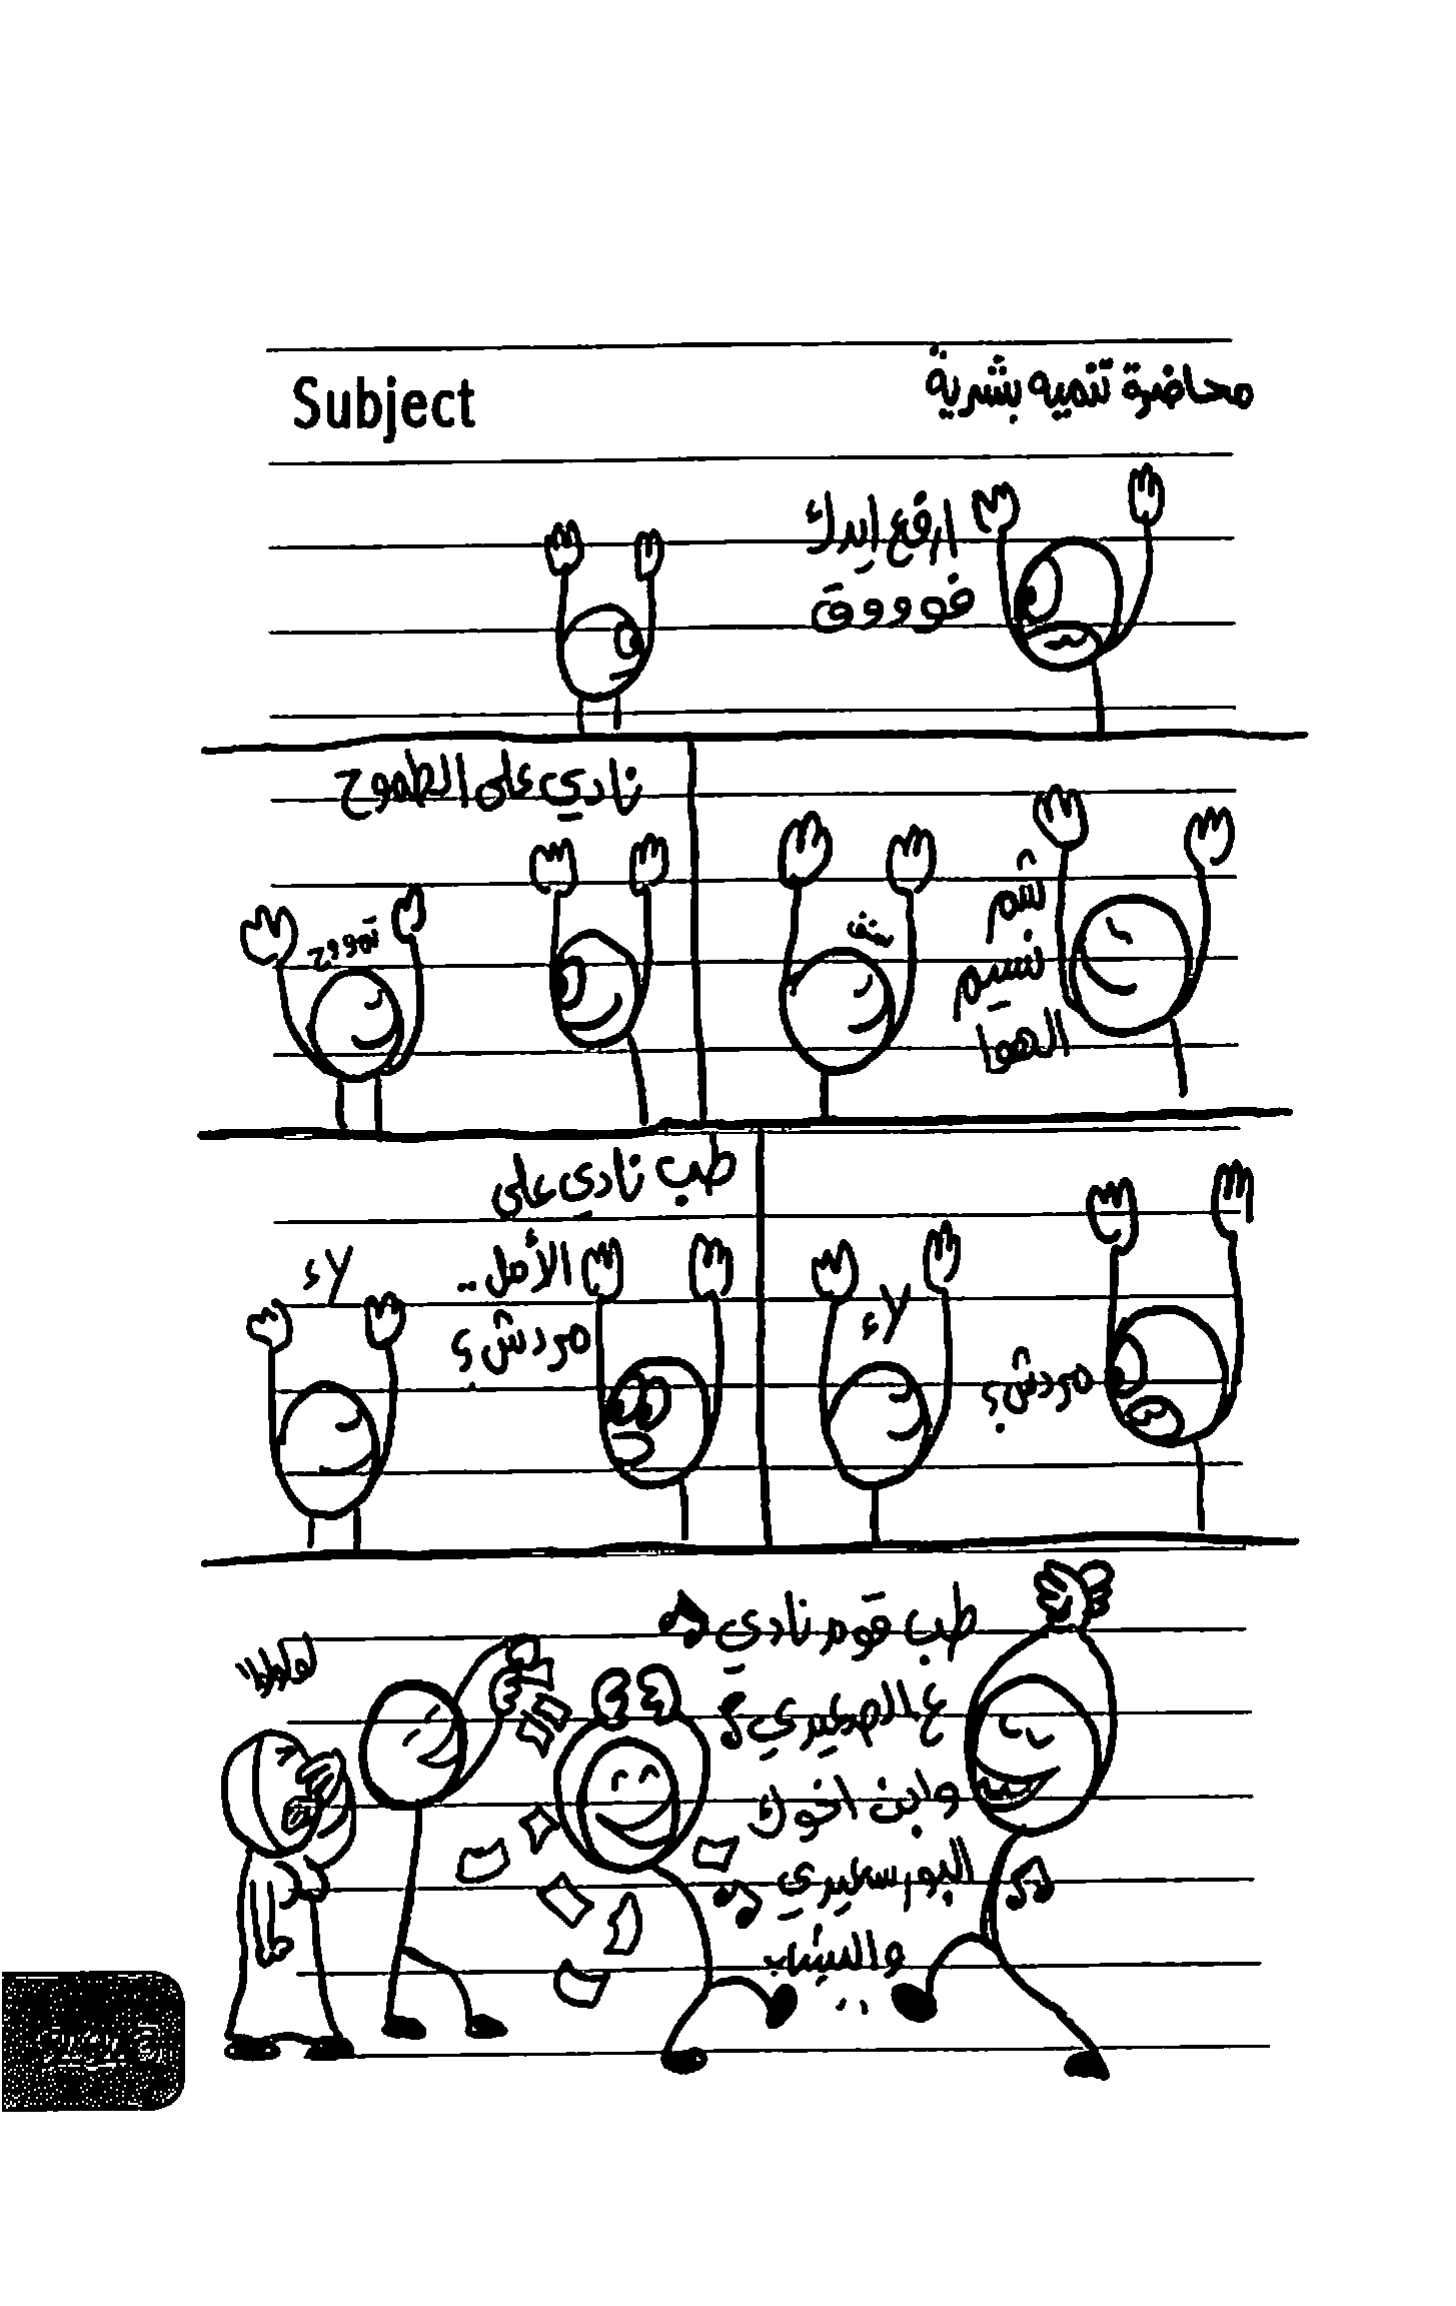 Subject
محاضرة تنميه بشرية
ارفع ايدك
فوووق
شم
نسيم
الهوا
شق
نادي على الطموح
تمووح
مردش؟
لاء
طب نادي على
الأمل..
مردش؟
لاء
طب قوم نادي
ع الصعيدي
وابن اخوك
البورسعيدي
والشباب